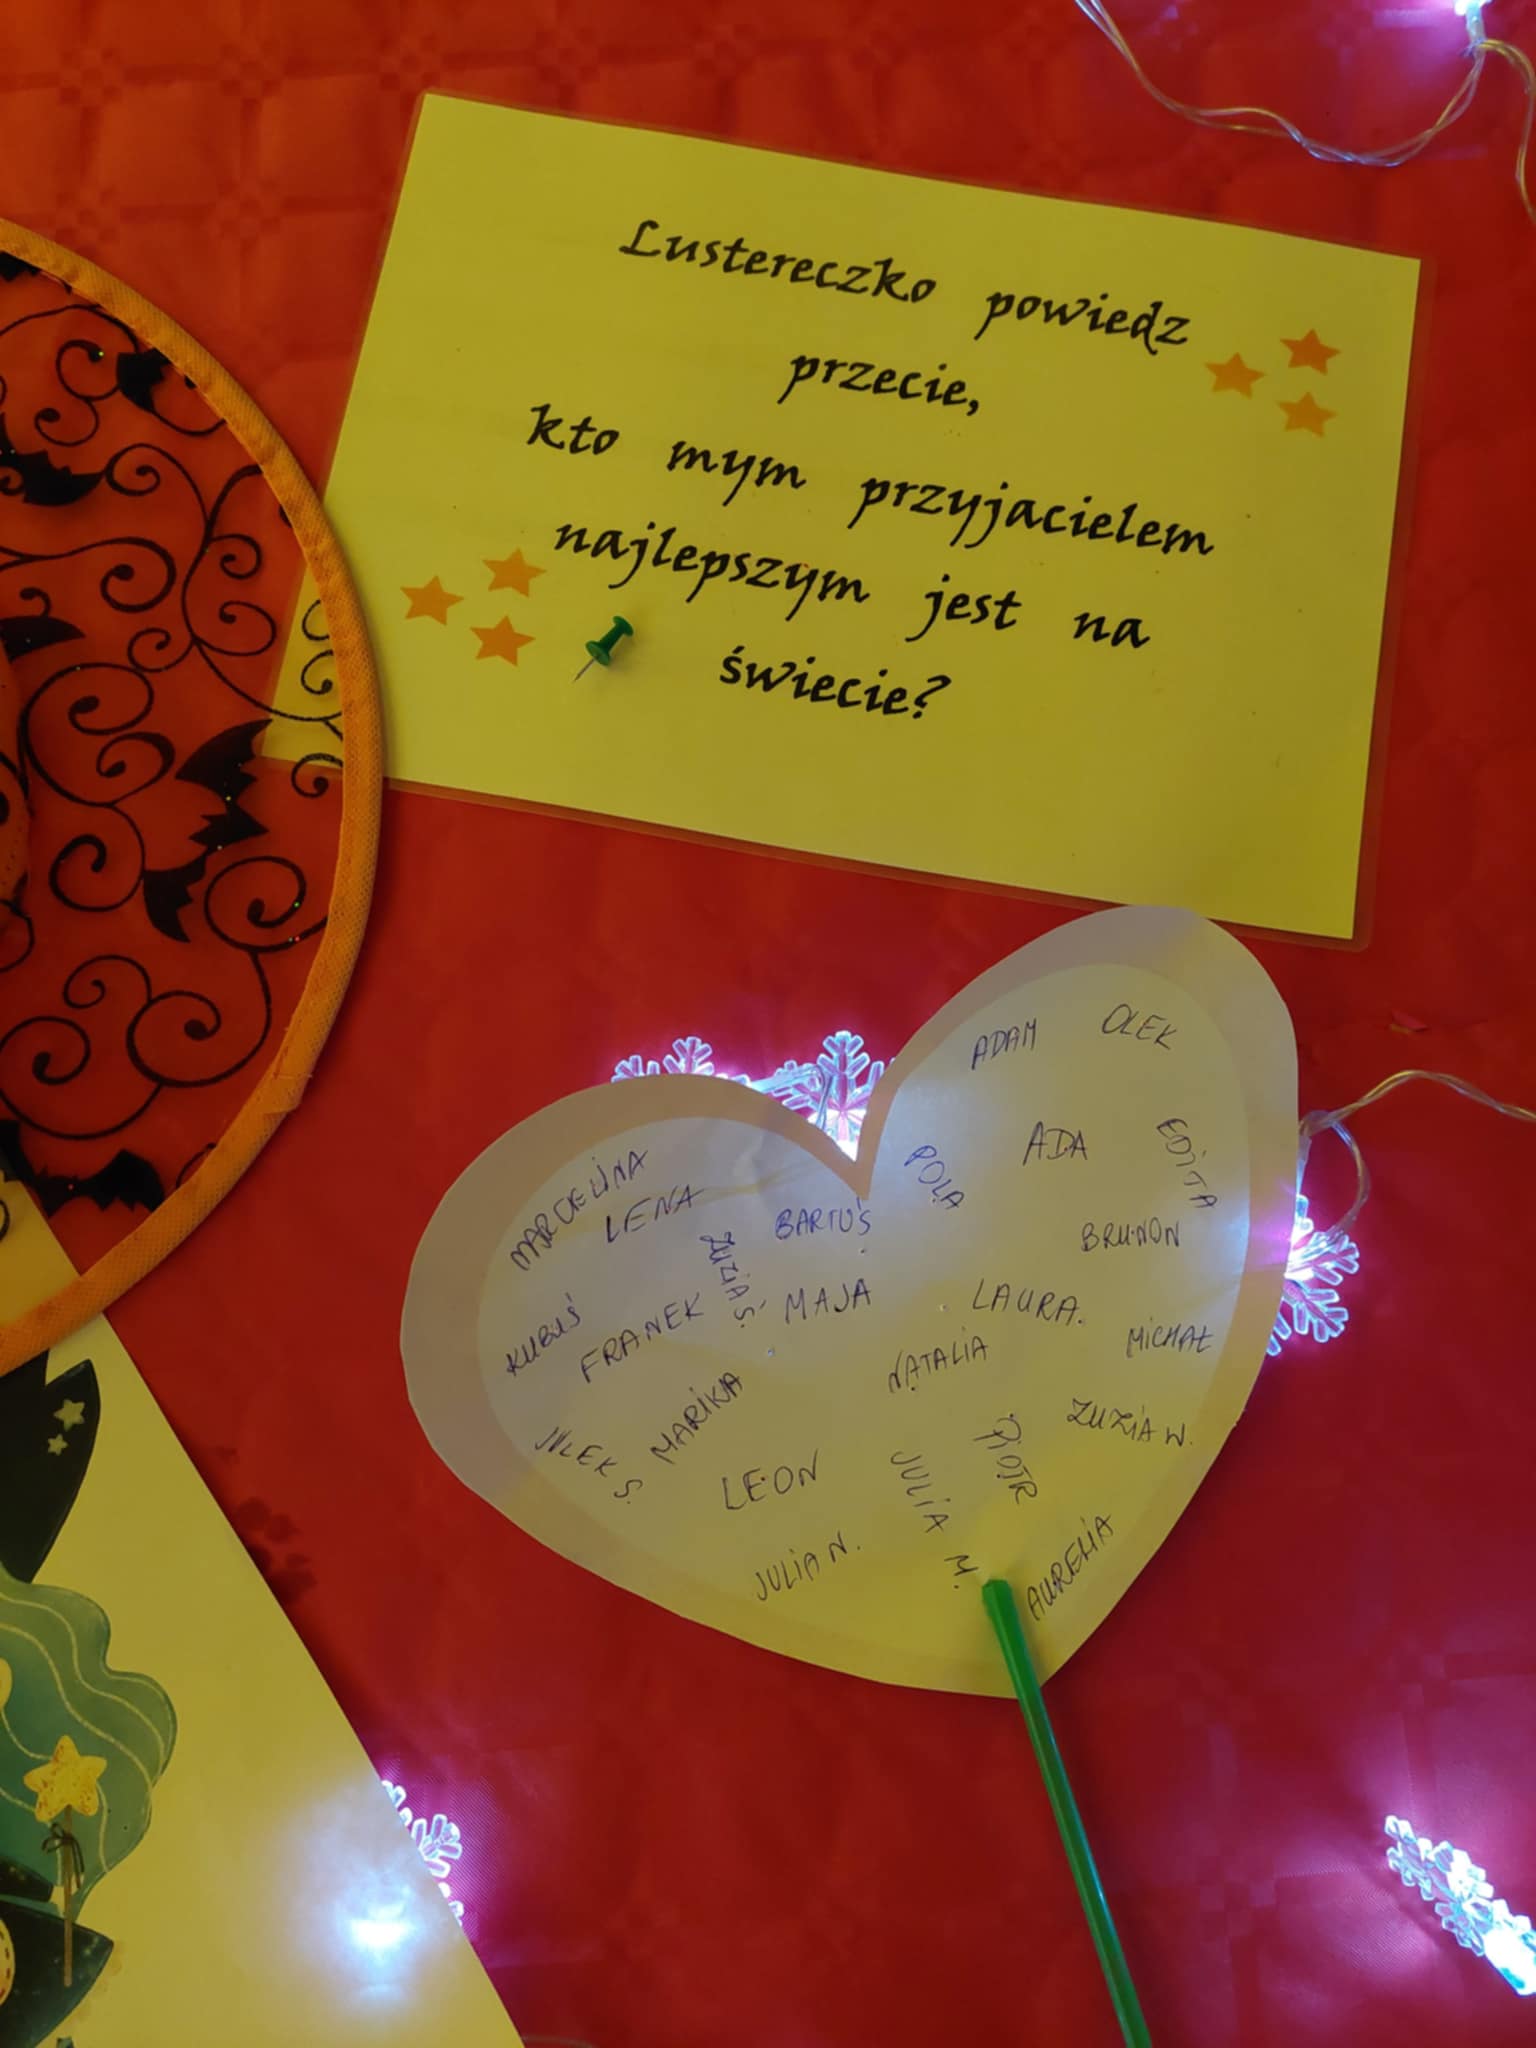 Lustereczko powiedz
przecie,
kto mym przyjacielem
najlepszym jest na
świecie?
ADAM
OLEK
MARCELINA
LENA
BARTUŚ
POLA
ADA
EDITA
ZUZIA Ś.
BRUNON
KUBUŚ
FRANEK
MAJA
LAURA.
MICHAŁ
NATALIA
JULEK S.
MARIKA
ZUZIA W.
LEON
JULIA M.
PIOTR
JULIA N.
AURELIA